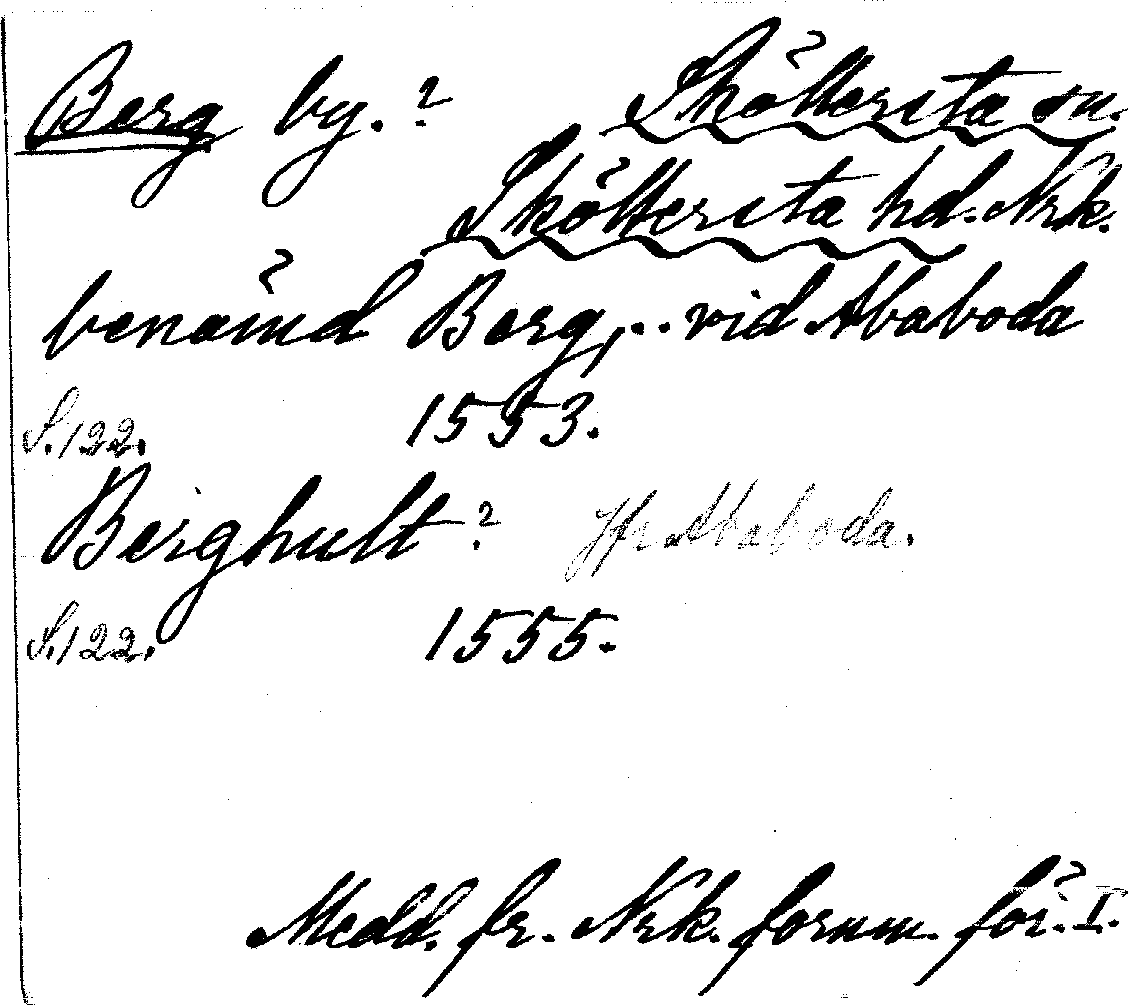 Berg by.? Sköllersta sn.
Sköllersta hd. Nrk.
benämd Berg,.. vid Ababoda
S.122. 1553.
Berghult? Jfr Ababoda.
S.122. 1555.
Medd. fr. Nrk. fornm. för. I.